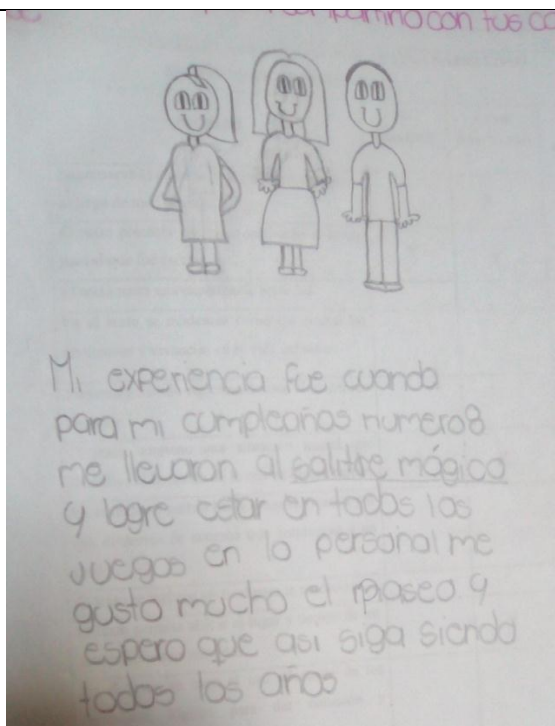 con tus co
Mi experiencia fue cuando
para mi cumpleaños numero 8
me llevaron al salitre mágico
y logre estar en todos los
juegos en lo personal me
gusto mucho el paseo y
espero que asi siga siendo
todos los años